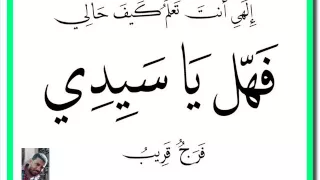 إِلٰهِي أَنتَ تَعْلَمُ كَيفَ حَالِي
فَهَل يَا سَيِدِي
فَرَجٌ قَرِيبُ